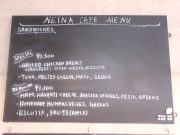 NEINA CAFE MENU
SANDWICHES
SPECIAL ¥1,300
- GRILLED CHICKEN BREAST
- TUNA, MELTED CHEESE, MAYO, GREENS
REGULAR ¥1,100
- HAM, HAVARTI CHEESE, ROASTED VEGGIES, PESTO, GREENS
- HOMEMADE HUMMUS, VEGGIES, GREENS
- RICOTTA, FRUITS (APPLE)